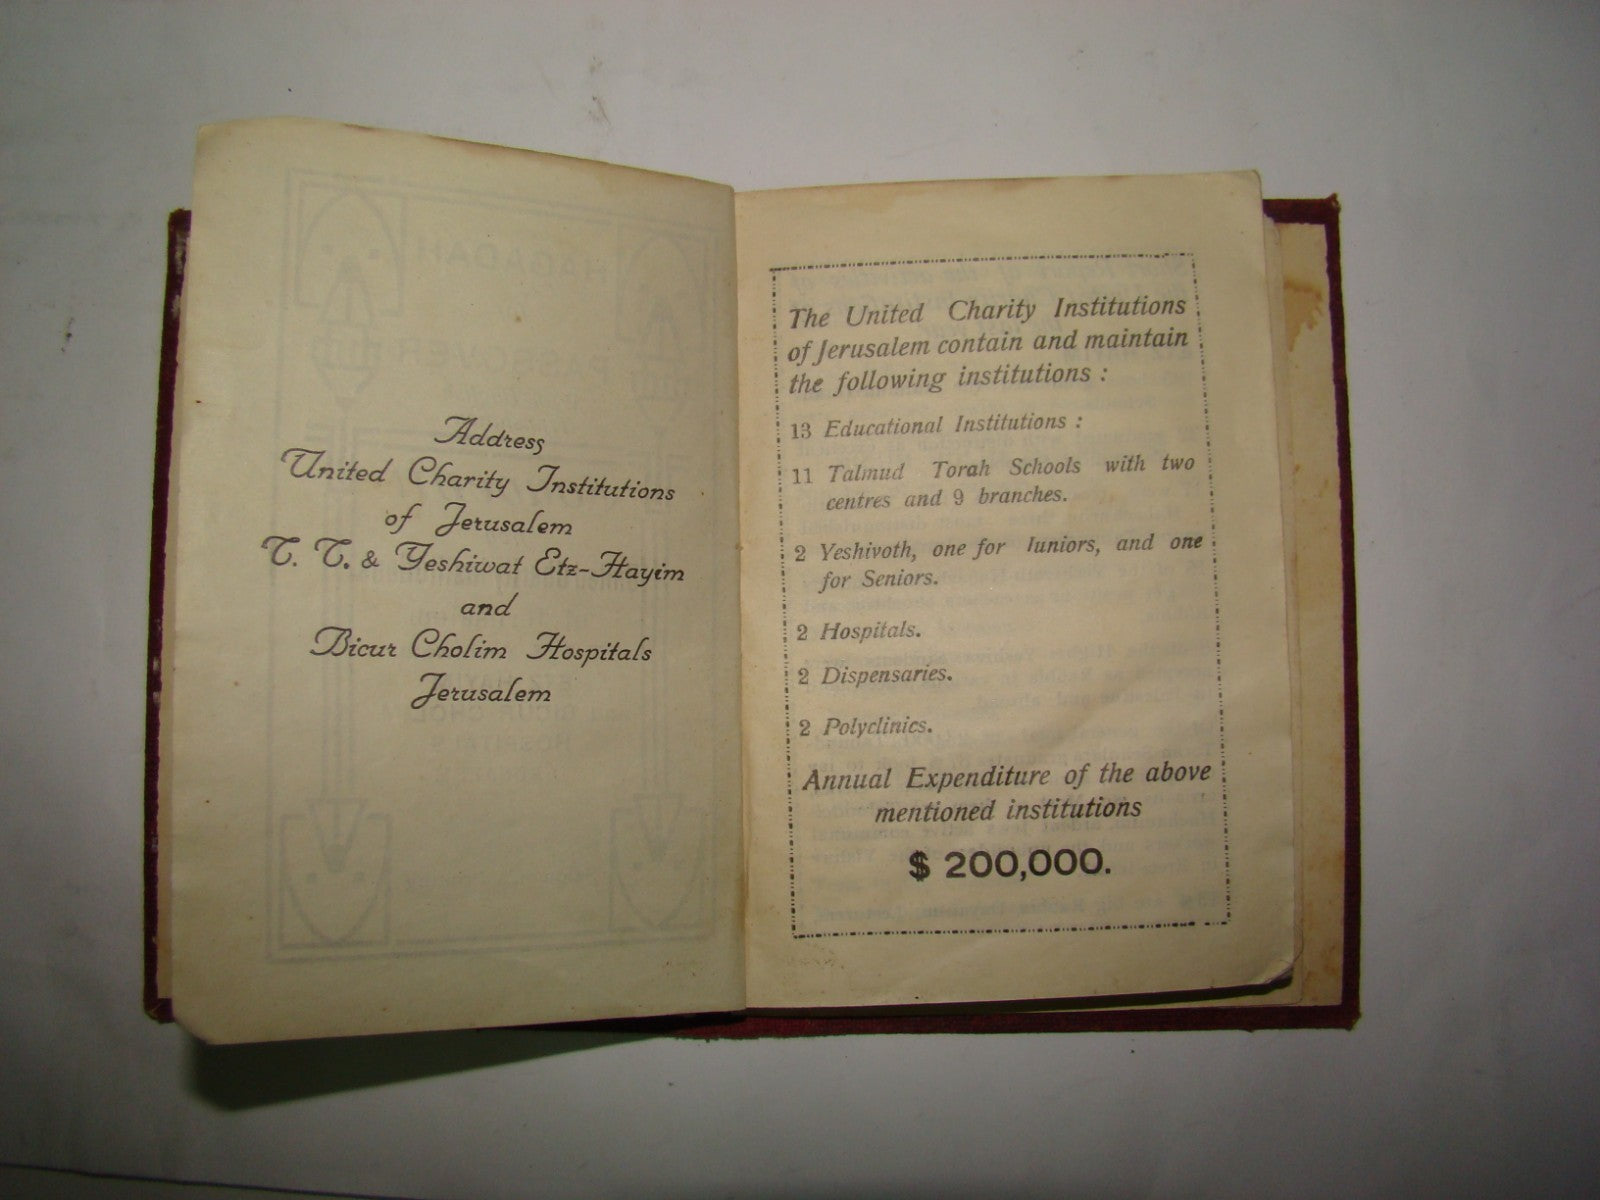 Address
United Charity Institutions
of Jerusalem
T. T. & Yeshiwat Etz-Hayim
and
Bicur Cholim Hospitals
Jerusalem
The United Charity Institutions
of Jerusalem contain and maintain
the following institutions :
13 Educational Institutions :
11 Talmud Torah Schools with two
centres and 9 branches.
2 Yeshivoth, one for Iuniors, and one
for Seniors.
2 Hospitals.
2 Dispensaries.
2 Polyclinics.
Annual Expenditure of the above
mentioned institutions
$ 200,000.